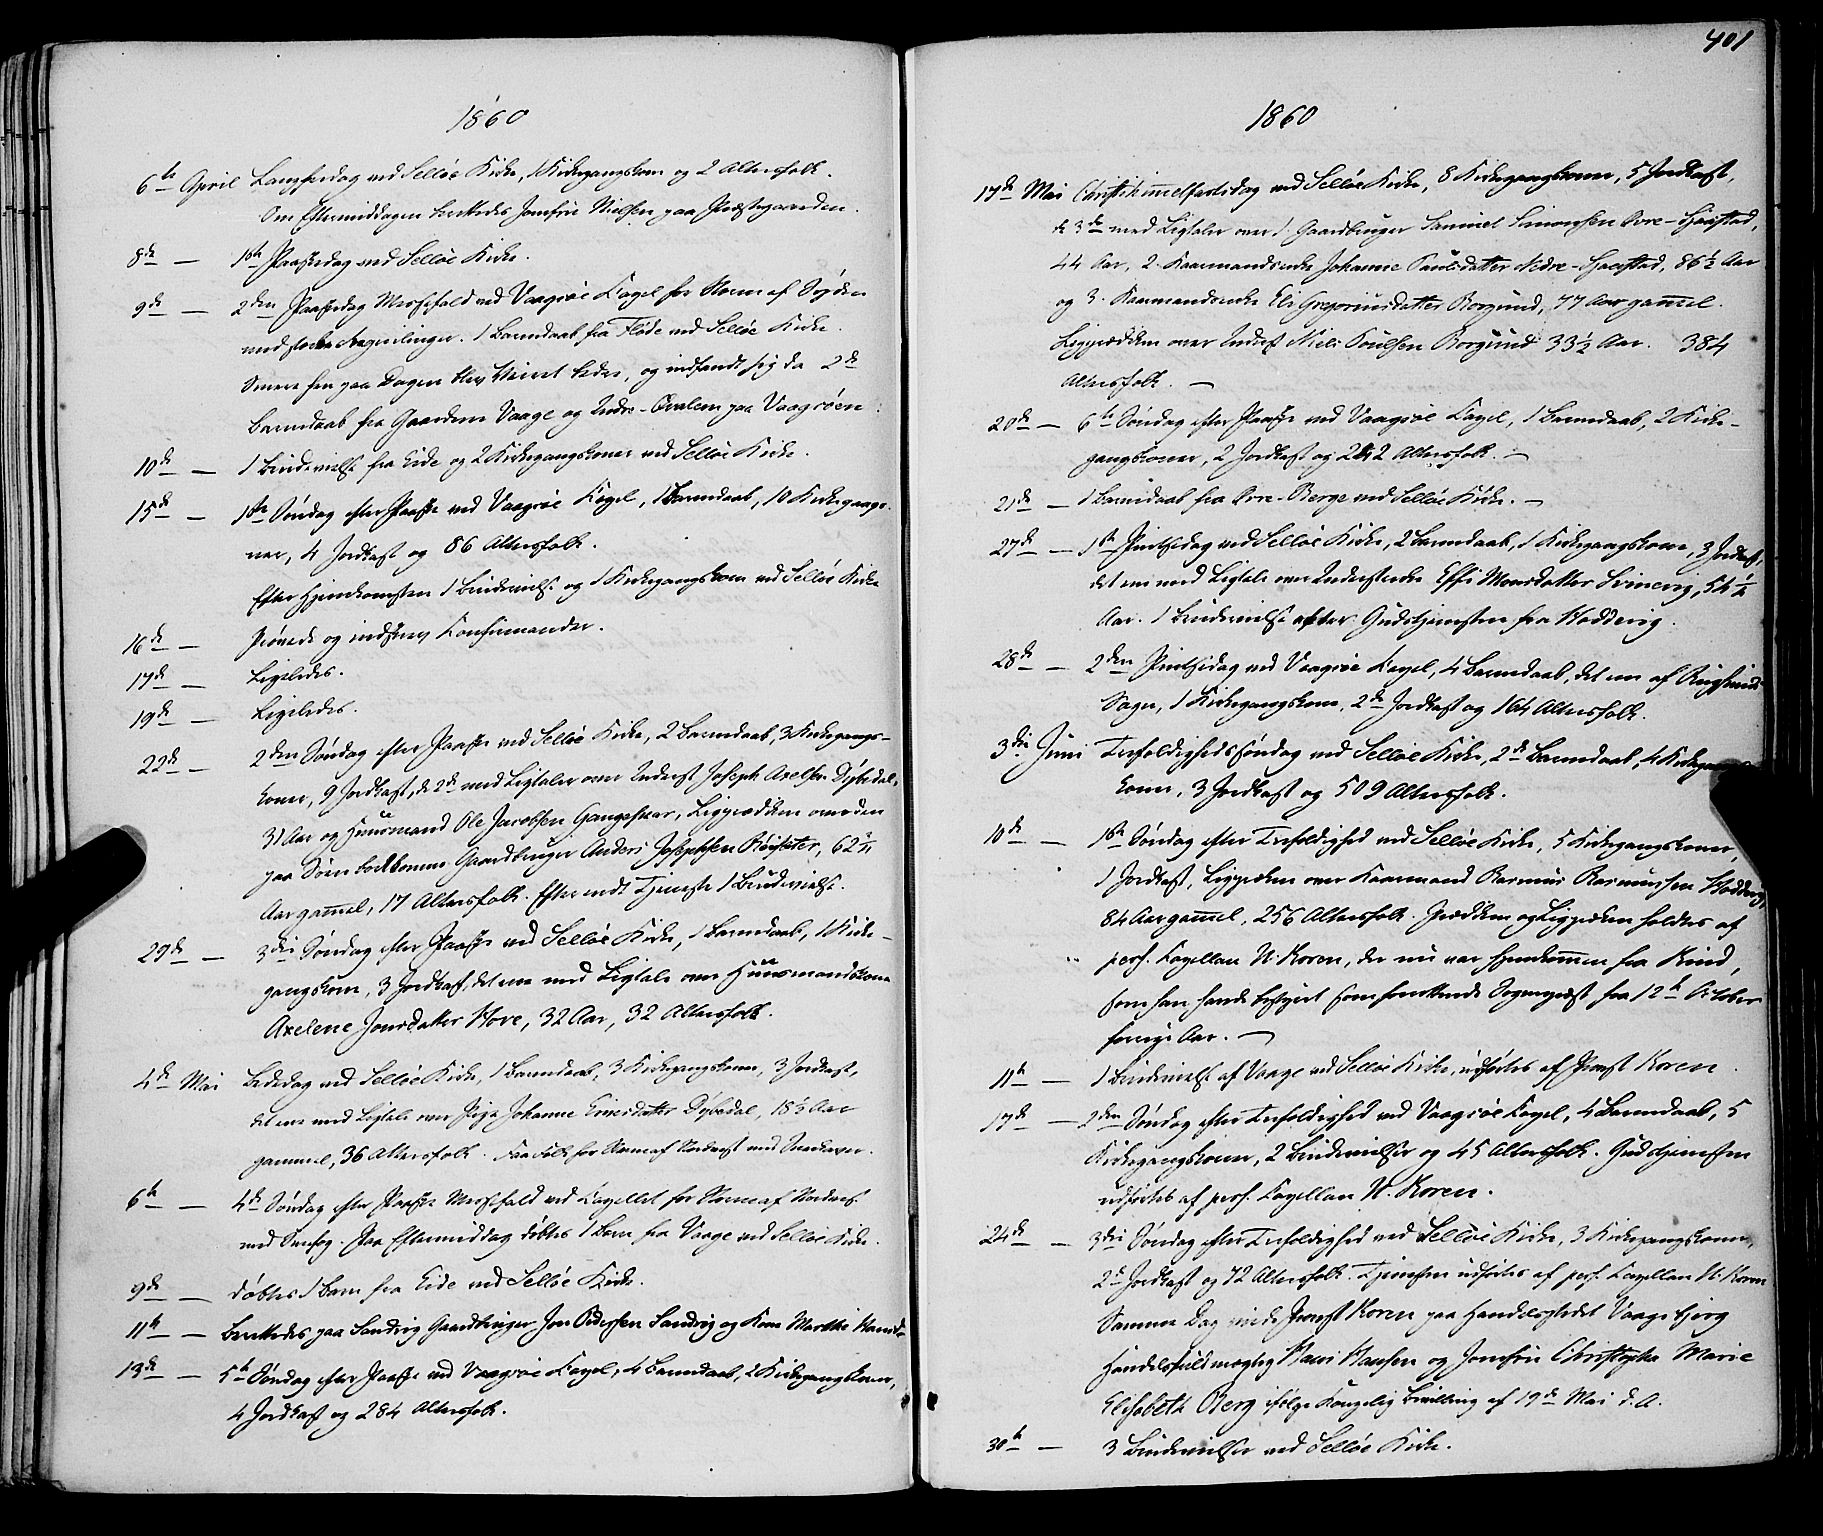 1860
6te April Langfredag ved Selløe Kirke, 1 Kirkegangskone og 2 Altersfolk.
Om Eftermiddagen berettedes Jomfrue Nielsen paa Præstegaarden.
8de — 1ste Paaskedag ved Selløe Kirke.
9de — 2den Paaskedag Messefald ved Vaagsøe Capel for Storm af Syden
med stærke Regniilinger. 1 Barnedaab fra Flöde ved Selløe Kirke.
Senere hen paa Dagen blev Veiret bedre, og indfandt sig da 2de
Barnedaab fra Gaardene Vaage og Indre-Qvalem paa Vaagsøen.
10de — 1 Brudevielse fra Eide og 2 Kirkegangskoner ved Selløe Kirke.
15de — 1ste Søndag efter Paaske ved Vaagsøe Capel, 1 Barnedaab, 10 Kirkegangs-
ner, 4 Jordkast og 86 Altersfolk.
Efter Hjemkomsten 1 Brudevielse og 1 Kirkegangskone ved Selløe Kirke
16de — Prøvede og indskrev Konfirmander.
17de — Ligeledes.
19de — Ligeledes.
22de — 2den Søndag efter Paaske ved Selløe Kirke, 2 Barnedaab, 3 Kirkegangs-
koner, 9 Jordkast, de 2de med Ligtaler over Inderst Joseph Axelsen Dybedal,
31 Aar og Huusmand Ole Jacobsen Gangeskar, Ligprædiken over den
paa Søen bortkomne Gaardbruger Anders Josephsen Røisæter, 62
Aar gammel, 17 Altersfolk. Efter endt Tjeneste 1 Brudevielse.
29de — 3die Søndag efter Paaske ved Selløe Kirke, 1 Barnedaab, 1 Kirke-
gangskone, 3 Jordkast, det ene med Ligtale over Huusmandskone
Axelene Jonsdatter Hove, 32 Aar, 32 Altersfolk.
4de Mai Bededag ved Selløe Kirke, 1 Barnedaab, 3 Kirkegangskoner, 3 Jordkast,
det ene med Ligtale over Pige Johanne Dybedal, 18½ Aar
gammel, 36 Altersfolk. Faa Folk for Storm af Nordvest med Sneekaver.
6te — 4de Søndag efter Paaske Messefald ved Capellet for Storm af Nordvest
med Sneefog. Paa Eftermiddag døbtes 1 Barn fra Vaage ved Selløe Kirke.
9de — døbtes 1 Barn fra Eide ved Selløe Kirke.
11te — Berettedes paa Sandvig Gaardbruger Jon Pedersen Sandvig og Kone Marthe
13de — 5te Søndag efter Paaske ved Vaagsøe Capel, 4 Barnedaab, 2 Kirkegangskoner,
4 Jordkast og 284 Altersfolk.
401
1860
17de Mai Christi Himmelfartsdag ved Selløe Kirke, 8 Kirkegangskoner, 5 Jordkast,
de 3de med Ligtaler over 1. Gaardbruger Samuel Simonsen Øvre-Hjaastad,
44 Aar, 2. Kaarmandsenke Johanne Paulsdatter Nedre-Hjaastad, 86½ Aar
og 3. Kaarmandsenke Eli Gregoriusdatter Borgund, 77 Aar gammel.
Ligprædiken over Inderst Niels Poulsen Borgund 33½ Aar. 384
Altersfolk. —
20de — 6te Søndag efter Paaske ved Vaagsøe Capel, 1 Barnedaab, 2 Kirke-
gangskoner, 2 Jordkast og 242 Altersfolk. —
21de — 1 Barnedaab fra Øvre-Berge ved Selløe Kirke. —
27de — 1ste Pintsedag ved Selløe Kirke, 2 Barnedaab, 1 Kirkegangskone, 3 Jordkast,
det ene med Ligtale over Inderstenke Effi Monsdatter Svinevig, 54½
Aar. 1 Brudevielse efter Gudstjenesten fra Hoddevig.
28de — 2den Pintsedag ved Vaagsøe Capel, 4 Barnedaab, det ene af Rugsund
Sogn, 1 Kirkegangskone, 2de Jordkast og 164 Altersfolk.
3die Juni Trefoldighedssøndag ved Selløe Kirke, 2de Barnedaab, 4 Kirkegangs
koner, 3 Jordkast og 509 Altersfolk.
10de — 1ste Søndag efter Trefoldighed ved Selløe Kirke, 5 Kirkegangskoner,
1 Jordkast, Ligprediken over Kaarmand Rasmus Rasmussen Hoddevig,
84 Aar gammel, 256 Altersfolk. Prædiken og Ligprediken holdtes af
pers. Capellan N. Koren, der nu var hjemkommen fra Kind,
som han havde bestyret som constitueret Sognepræst fra 12te October
forrige Aar. —
11te — 1 Brudevielse af Vaage ved Selløe Kirke, udførtes af Provst Koren.
17de — 2den Søndag efter Trefoldighed ved Vaagsøe Capel, 4 Barnedaab, 5
Kirkegangskoner, 2 Brudevielser og 45 Altersfolk. Gudstjenesten
udførtes af pers. Capellan N. Koren.
24de — 3die Søndag efter Trefoldighed ved Selløe Kirke, 3 Kirkegangskoner,
2de Jordkast og 72 Altersfolk. Tjenesten udførtes af pers. Capellan N. Koren
Samme Dag viede Provst Koren paa Handelsstedet Vaagsbjerg
Handelsfuldmægtig Hans Hansen og Jomfrue Christopha Marie
Elisabeth Berg ifølge Kongelig Bevilling af 19de Mai d. A.
30te — 3 Brudevielser ved Selløe Kirke.